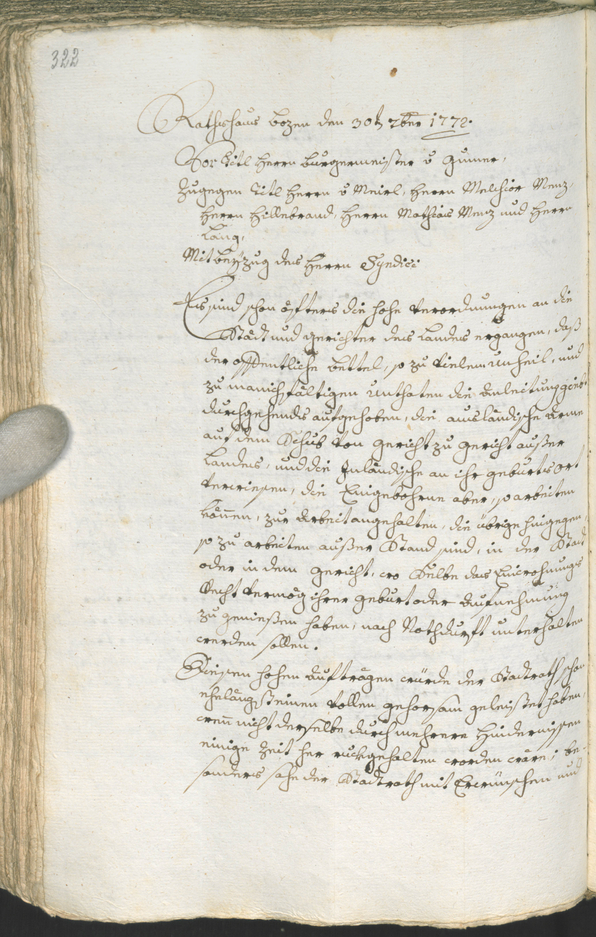 322
Rathshaus Bozen den 30t 7ber 1772.
Vor Titl Herrn Burgermeister v Gumer,
zugegen Titl Herrn v Meirl, Herrn Melchior Menz,
Herrn Hillebrand, Herrn Mathias Menz und Herrn
Lang,
Mit beyzug des Herrn Syndici
Es sind schon öfters die hohe Verordnungen an die
Stadt und gerichter des Landes ergangen, daß
der offentliche bettel, so zu vielem unheil, und
zu manichfältigen unthaten die anleitung giebt
durchgehends aufgehoben, die ausländische arme
auf dem Schub von gericht zu gericht außer
Landes, und die Inländische an ihr geburts ort
verwiesen, die Eingebohrne aber, so arbeiten
können, zur arbeit angehalten, die übrige hingegen
so zu arbeiten außer Stand sind, in der Stadt
oder in dem gericht, wo Selbe das Einwohnungs
Recht vermög ihrer geburt oder aufnehmung
zu genießen haben, nach Nothdurft unterhalten
werden sollen.
Diesen hohen aufträgen würde der Stadtrath schon
ehelängst einen vollen gehorsam geleistet haben,
wenn nicht derselbe durch mehrere Hindernissen
einige Zeit her ruckgehalten worden wäre; be-
sonders sahe der Stadtrath mit Erwünschen und